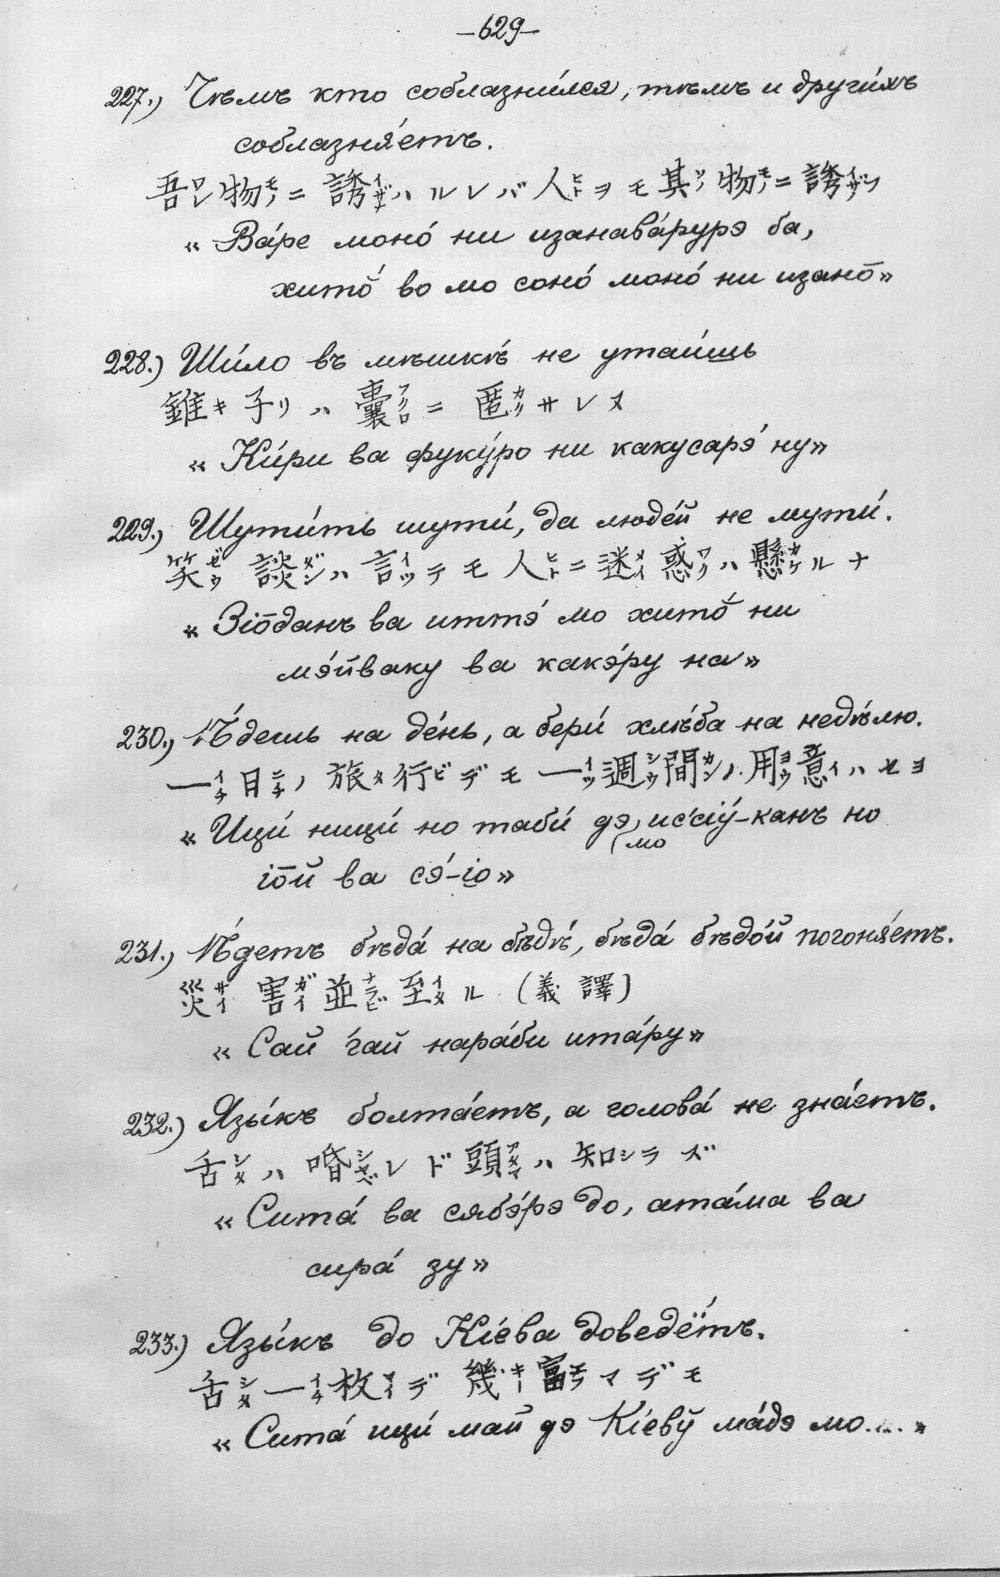 —629—
227.) Чѣмъ кто соблазни́лся, тѣмъ и други́хъ
соблазня́етъ.
吾ワレ物モノニ誘イザナハルレバ人ヒトヲモ其ソノ物モノニ誘イザナフ
« Ва́ре моно́ ни изанава́рурэ ба,
хито̄́ во мо соно́ моно́ ни изано̄»
228.) Ши́ло въ мѣшкѣ́ не утаи́шь
錐キ子リハ囊フクロニ匿カクサレヌ
« Ки́ри ва фуку́ро ни какусарэ́ ну»
229.) Шути́ть шути́, да люде́й не мути́.
笑ゼウ談ダンハ言イツテモ人ヒトニ迷メイ惑ワクハ懸カケルナ
« Зіо̄данъ ва иттэ́ мо хито̄́ ни
мэ́йваку ва какэ́ру на»
230.) Ѣ́дешь на де́нь, а бери́ хлѣ́ба на недѣ́лю.
一イチ日ニチノ旅タ行ビデモ一イツ週シウ間カンノ用ヨウ意イハセヨ
« Ици́ ници́ но таби́ дэ, ис̄сіӯ-канъ но
мо
іо̄й ва сэ́-іо»
231.) И́детъ бѣда́ на бѣдѣ́, бѣда́ бѣдо́й погоня́етъ.
災サイ害ガイ並ナラビ至イタル (義譯)
« Сай гай нара́би ита́ру»
232.) Язы́къ болта́етъ, а голова́ не зна́етъ.
舌シタハ喋シャベレド頭アタマハ知シラズ
« Сита́ ва сябэ́рэ до, ата́ма ва
сира́ зу»
233.) Язы́къ до Кі́ева доведё́тъ.
舌シタ一イチ枚マイデ幾キー富エフマデモ
« Сита́ ици́ май дэ Кі́евӯ ма́дэ мо.... »